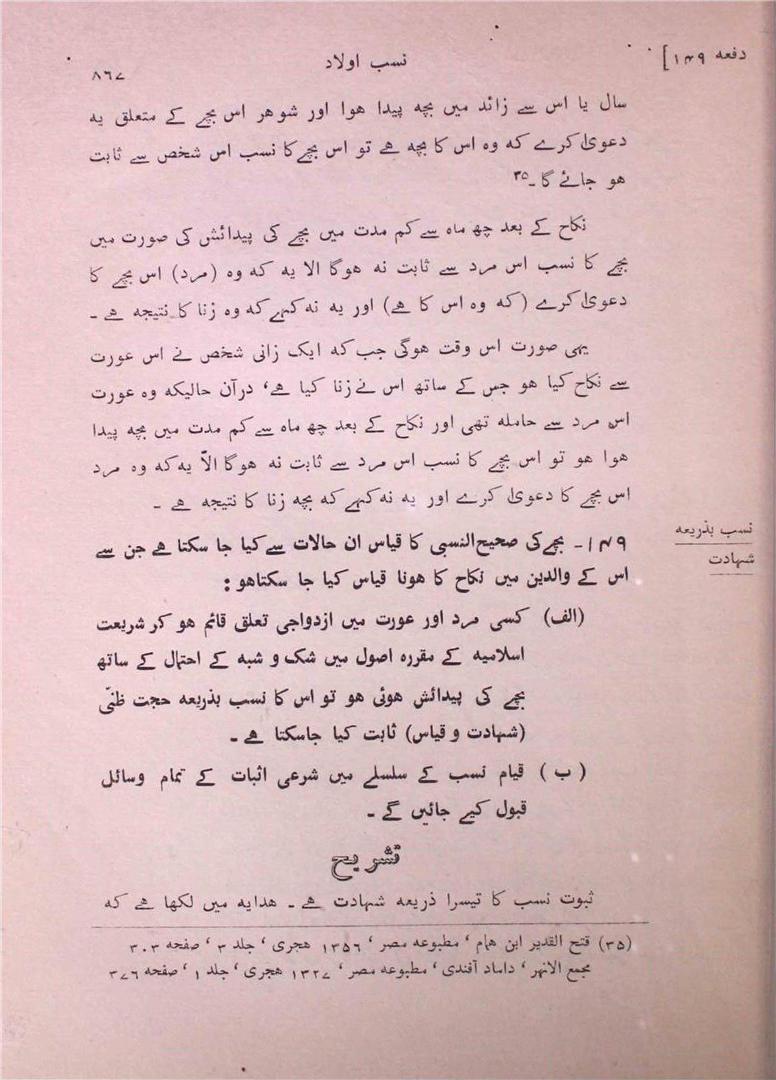 دفعہ ۱۴۹]
نسب اولاد
۸۶۷
سال یا اس سے زائد میں بچہ پیدا ہوا اور شوہر اس بچے کے متعلق یہ
دعویٰ کرے کہ وہ اس کا بچہ ہے تو اس بچے کا نسب اس شخص سے ثابت
ہو جائے گا ۔۳۵
نکاح کے بعد چھ ماہ سے کم مدت میں بچے کی پیدائش کی صورت میں
بچے کا نسب اس مرد سے ثابت نہ ہوگا الا یہ کہ وہ (مرد) اس بچے کا
دعویٰ کرے (کہ وہ اس کا ہے) اور یہ نہ کہے کہ وہ زنا کا نتیجہ ہے ۔
یہی صورت اس وقت ہوگی جب کہ ایک زانی شخص نے اس عورت
سے نکاح کیا ہو جس کے ساتھ اس نے زنا کیا ہے، درآن حالیکہ وہ عورت
اس مرد سے حاملہ تھی اور نکاح کے بعد چھ ماہ سے کم مدت میں بچہ پیدا
ہوا ہو تو اس بچے کا نسب اس مرد سے ثابت نہ ہوگا الاّ یہ کہ وہ مرد
اس بچے کا دعویٰ کرے اور یہ نہ کہے کہ بچہ زنا کا نتیجہ ہے ۔
نسب بذریعہ
شہادت
۱۴۹۔ بچے کی صحیح النسبی کا قیاس ان حالات سے کیا جا سکتا ہے جن سے
اس کے والدین میں نکاح کا ہونا قیاس کیا جا سکتا ہو :
(الف) کسی مرد اور عورت میں ازدواجی تعلق قائم ہو کر شریعت
اسلامیہ کے مقررہ اصول میں شک و شبہ کے احتمال کے ساتھ
بچے کی پیدائش ہوئی ہو تو اس کا نسب بذریعہ حجت ظنّی
(شہادت و قیاس) ثابت کیا جاسکتا ہے ۔
(ب) قیام نسب کے سلسلے میں شرعی اثبات کے تمام وسائل
قبول کیے جائیں گے ۔
تشریح
ثبوت نسب کا تیسرا ذریعہ شہادت ہے ۔ ہدایہ میں لکھا ہے کہ
(۳۵) فتح القدیر ابن ہمام، مطبوعہ مصر، ۱۳۵۶ ہجری، جلد ۳، صفحہ ۳۰۳
مجمع الانہر، داماد آفندی، مطبوعہ مصر، ۱۳۲۷ ہجری، جلد ۱، صفحہ ۳۷۶